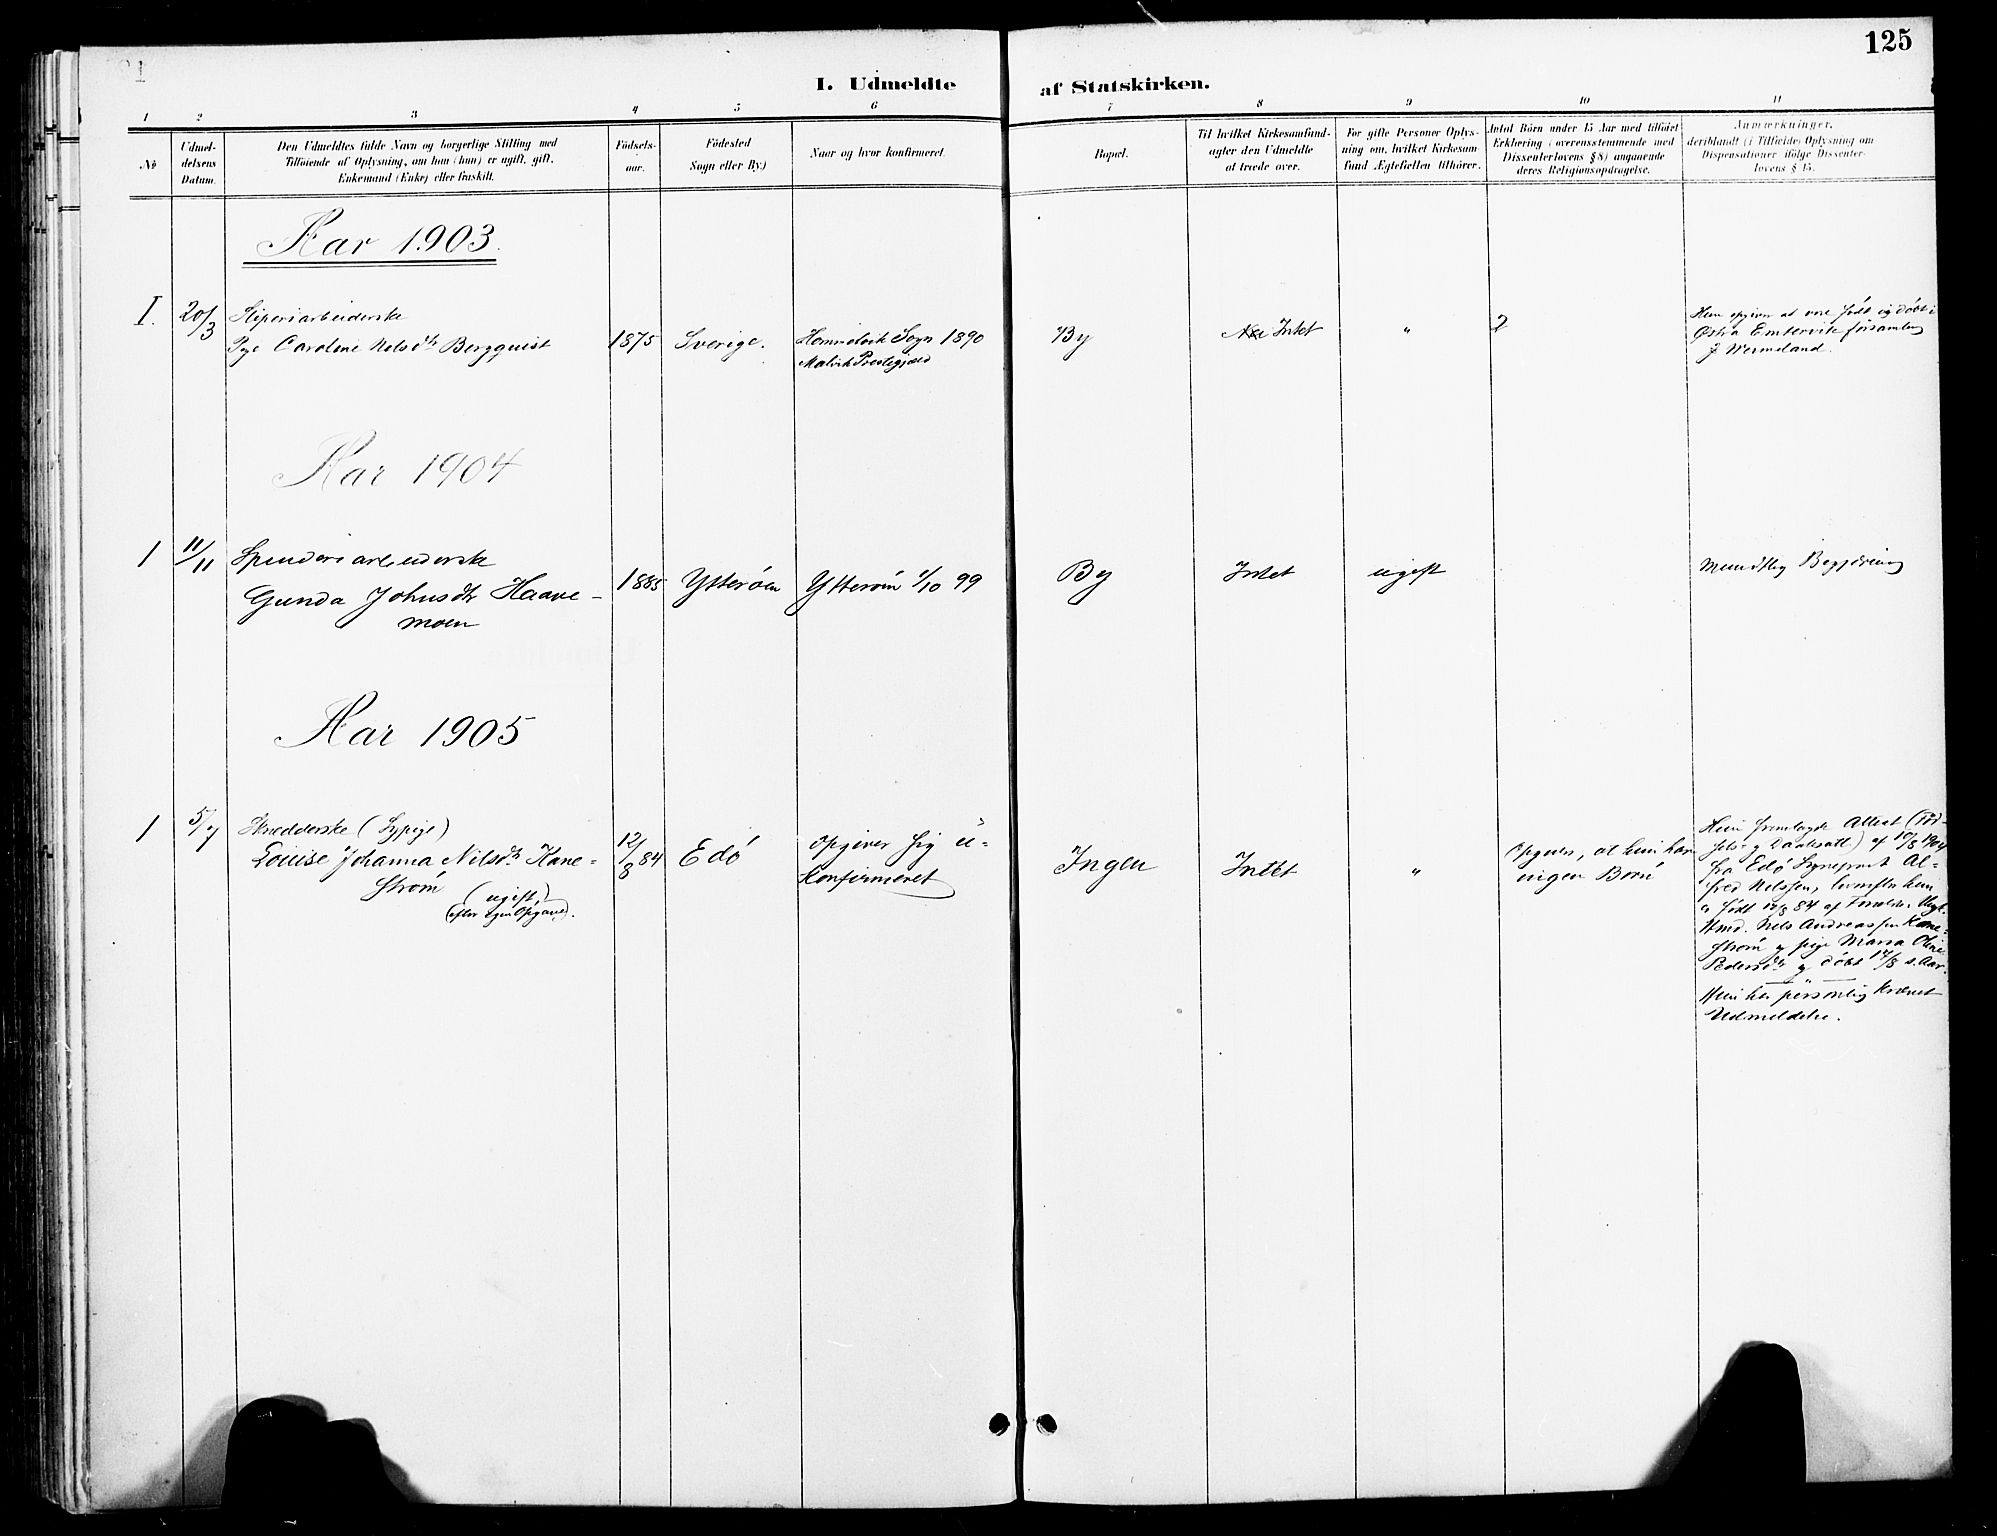 125
I. Udmeldte af Statskirken.
1 2 3 4 5 6 7 8 9 10 11
No
Udmel-
delsens
Datum.
Den Udmeldtes fulde Navn og borgerlige Stilling med
Tilføiende af Oplysning, om han (hun) er ugift, gift,
Enkemand (Enke) eller fraskilt.
Fødsels-
aar.
Fødested
Sogn eller By.)
Naar og hvor konfirmeret.
Bopæl.
Til hvilket Kirkesamfund
agter den Udmeldte
at træde over.
For gifte Personer Oplys-
ning om, hvilket Kirkesam-
fund Ægtefællen tilhører.
Antal Børn under 15 Aar med tilføiet
Erklæring (overensstemmende med
Dissenterlovens § 8) angaaende
deres Religionsopdragelse.
Anmærkninger,
deriblandt (i Tilfælde) Oplysning om
Dispensationer ifølge Dissenter-
lovens § 15.
Aar 1903.
I.
20/3
Sliperiarbeiderske
Pige Caroline Nelsdtr Bergquist
1875
Sverige.
Hommelvik Sogn 1890
Malvik Prestegjæld
By
Intet
"
2
Hun opgiver at være født og døbt i
Østra Embervik församling
i Wermeland.
Aar 1904
1
11/11
Spinderiarbeiderske
Gunda Johnsdtr Haave-
moen
1885
Ytterøen
Ytterøen 1/10 99
By
Intet
ugift
Mundtlig Begjæring
Aar 1905
1
5/7
Skrædderske (Sypige)
Louise Johanna Nilsdtr Kane-
strøm
(ugift,
efter egen Opgave).
12/8 84
Edø
opgiver sig u-
konfirmeret
Ingen
Intet
"
Opgiver, at hun har
ingen Børn
Hun fremlagde Attest (Fød-
sels- og Daabsatt) af 10/8 1904
fra Edø Sogneprest Al-
fred Nelssen, hvorefter hun
er født 12/8 84 af Forældre Ungk.
Nels Andreassen Kane-
strøm og pige Marsa Oline
Pedersdtr og døbt 17/8 s. Aar.
Hun har personlig krævet
Udmeldelse.